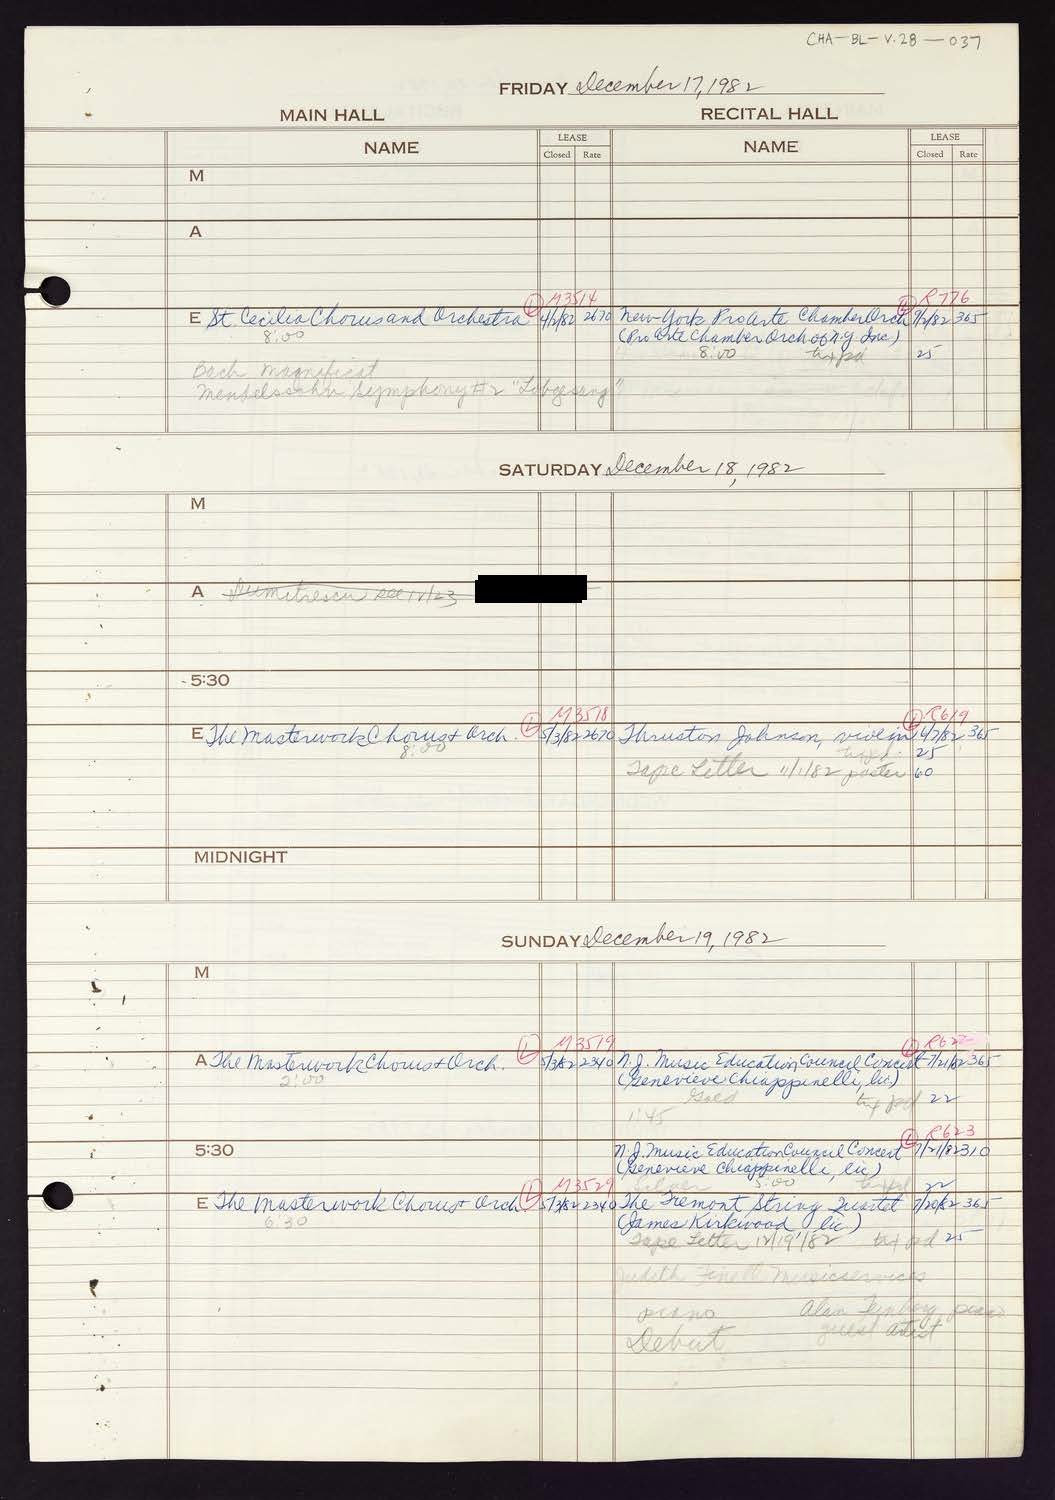 CHA-BL-V.28-037
FRIDAY December 17, 1982
MAIN HALL RECITAL HALL
NAME LEASE Closed Rate NAME LEASE Closed Rate
M
A
M3514 R776
E St. Cecilia Chorus and Orchestra L 4/1/82 2670 New York Pro Arte Chamber Orch L 9/2/82 365
(Pro Arte Chamber Orch of N.Y. Inc.)
8:00 8:00 tax pd 25
Bach Magnificat
Mendelssohn Symphony #2 "Lobgesang"
SATURDAY December 18, 1982
M
A Dumitrescu see 12/23
5:30
M3518 R619
E The Masterwork Chorus & Orch. L 5/3/82 2670 Thruston Johnson, violin L 6/7/82 365
8:00 tax pd. 25
Tape Letter 11/1/82 poster 60
MIDNIGHT
SUNDAY December 19, 1982
M
M3519 R622
A The Masterwork Chorus & Orch. L 5/3/82 2340 N.J. Music Education Council Concert L 7/21/82 365
2:00 (Genevieve Chiappinelli, lic.)
Gold tax pd 22
1:45
R623
5:30 N.J. Music Education Council Concert L 7/21/82 310
(Genevieve Chiappinelli, lic)
M3529 Silver 5:00 tax pd 22
E The Masterwork Chorus & Orch L 5/3/82 2340 The Fremont String Quartet 7/20/82 365
6:30 (James Kirkwood, lic)
Tape Letter 12/19/82 tax pd 25
Judith Finell Musicservices
piano Alan Feinberg, piano
Debut guest artist